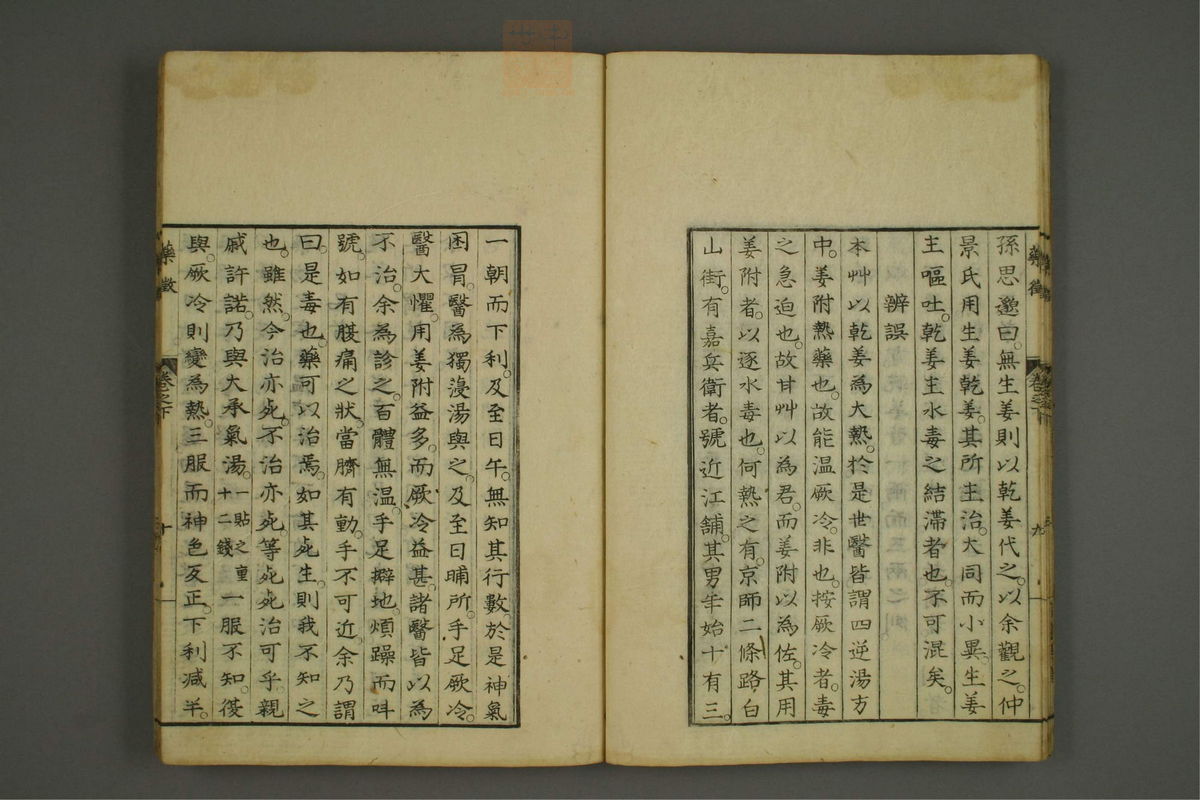 孫思邈曰。無生姜則以乾姜代之。以余觀之。仲
景氏用生姜乾姜。其所主治。大同而小異。生姜
主嘔吐。乾姜主水毒之結滯者也。不可混矣。
辨誤
本艸以乾姜為大熱。於是世醫皆謂四逆湯方
中。姜附熱藥也。故能温厥冷。非也。按厥冷者。毒
之急迫也。故甘艸以為君。而姜附以為佐。其用
姜附者。以逐水毒也。何熱之有。京師二條路白
山街。有嘉兵衛者。號近江舖。其男年始十有三。
藥徵
卷之下
九
一朝而下利。及至日午。無知其行數。於是神氣
困冒。醫為獨薓湯與之。及至日晡所。手足厥冷。
醫大懼。用姜附益多。而厥冷益甚。諸醫皆以為
不治。余為診之。百體無温。手足擗地。煩躁而叫
號。如有腹痛之狀。當臍有動。手不可近。余乃謂
曰。是毒也。藥可以治焉。如其死生。則我不知之
也。雖然。今治亦死。不治亦死。等死死治可乎。親
戚許諾。乃與大承氣湯。一貼之重十二錢一服不知。復
與。厥冷則變為熱。三服而神色反正。下利減半。
藥徵
卷之下
十